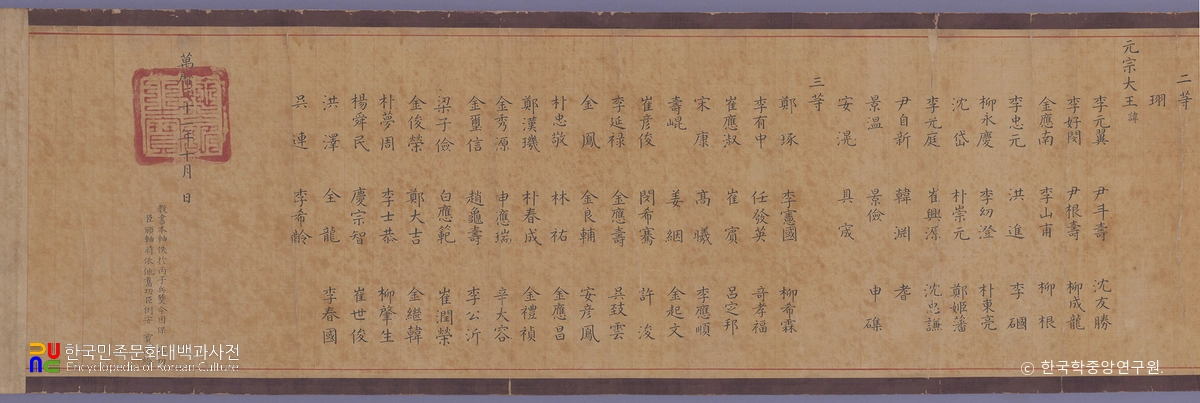 二等
珝
元宗大王諱
李元翼 尹斗壽 沈友勝
李好閔 尹根壽 柳成龍
金應南 李山甫 柳根
李忠元 洪進 李𥕏
柳永慶 李幼澄 朴東亮
沈岱 朴崇元 鄭姬藩
李元庭 崔興源 沈忠謙
尹自新 韓淵 耆
景温 景儉 申磼
安滉 具宬
三等
鄭琢 李憲國 柳希霖
李有中 任發英 奇孝福
崔應淑 崔賓 呂定邦
宋康 高曦 李應順
壽崐 姜絪 金起文
崔彦俊 閔希騫 許浚
李延禄 金應壽 吳致雲
金鳳 金良輔 安彦鳳
朴忠敬 林祐 金應昌
鄭漢璣 朴春成 金禮禎
金秀源 申應瑞 辛大容
金璽信 趙龜壽 李公沂
梁子儉 白應範 崔潤榮
金俊榮 鄭大吉 金繼韓
朴夢周 李士恭 柳肇生
楊舜民 慶宗智 崔世俊
洪澤 全龍 李春國
吳連 李希齡
萬曆三十二年十月 日
한국민족문화대백과사전
Encyclopedia of Korean Culture
© 한국학중앙연구원.